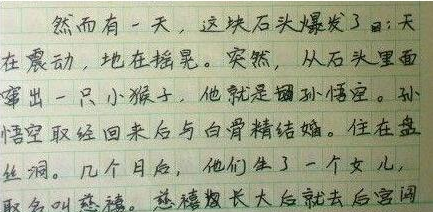 然而有一天，这块石头爆发了：天
在震动，地在摇晃。突然，从石头里面
窜出一只小猴子，他就是孙悟空。孙
悟空取经回来后与白骨精结婚。住在盘
丝洞。几个月后，他们生了一个女儿，
取名叫慈禧。慈禧长大后就去后宫闯